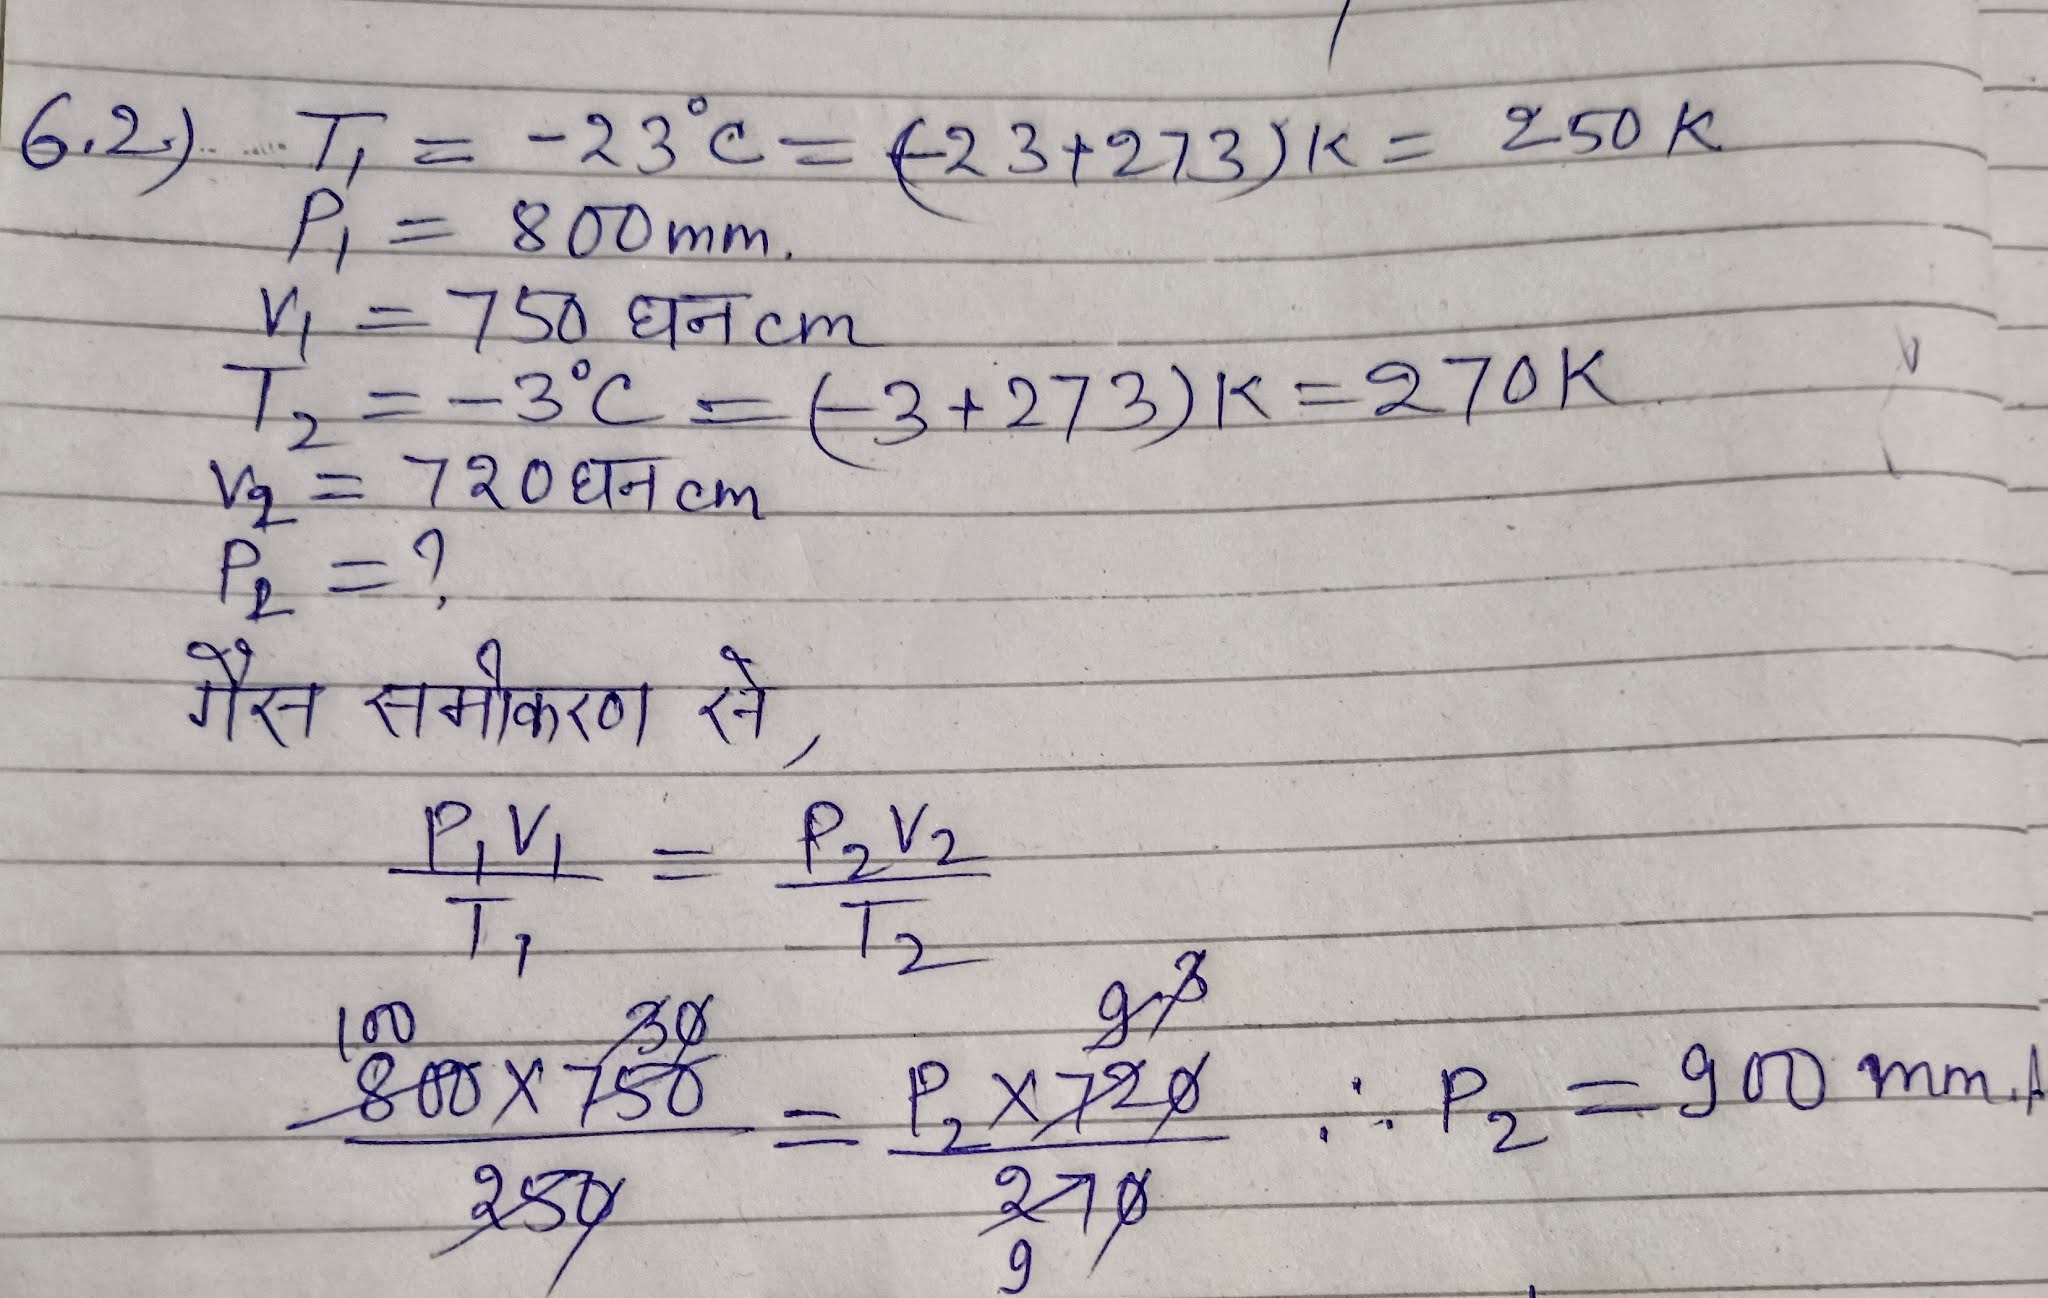 6.2.) T₁ = -23°C = (-23+273)K = 250K
P₁ = 800mm.
V₁ = 750 घन cm
T₂ = -3°C = (-3+273)K = 270K
V₂ = 720 घन cm
P₂ = ?
गैस समीकरण से,
P₁V₁ = P₂V₂
T₁ T₂
100 30 9 8
800 X 750 = P₂ X 720 ∴ P₂ = 900 mm.
250 270
9